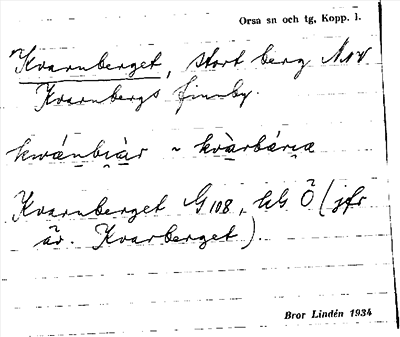 Orsa sn och tg, Kopp. l.
Kvarnberget, stort berg NNV
Kvarnbergs finnby.
kwánbiàr ~ kvàrbáriæ
Kvarnberget G 108, hbl Ö (jfr
äv. Kvarberget).
Bror Lindén 1934